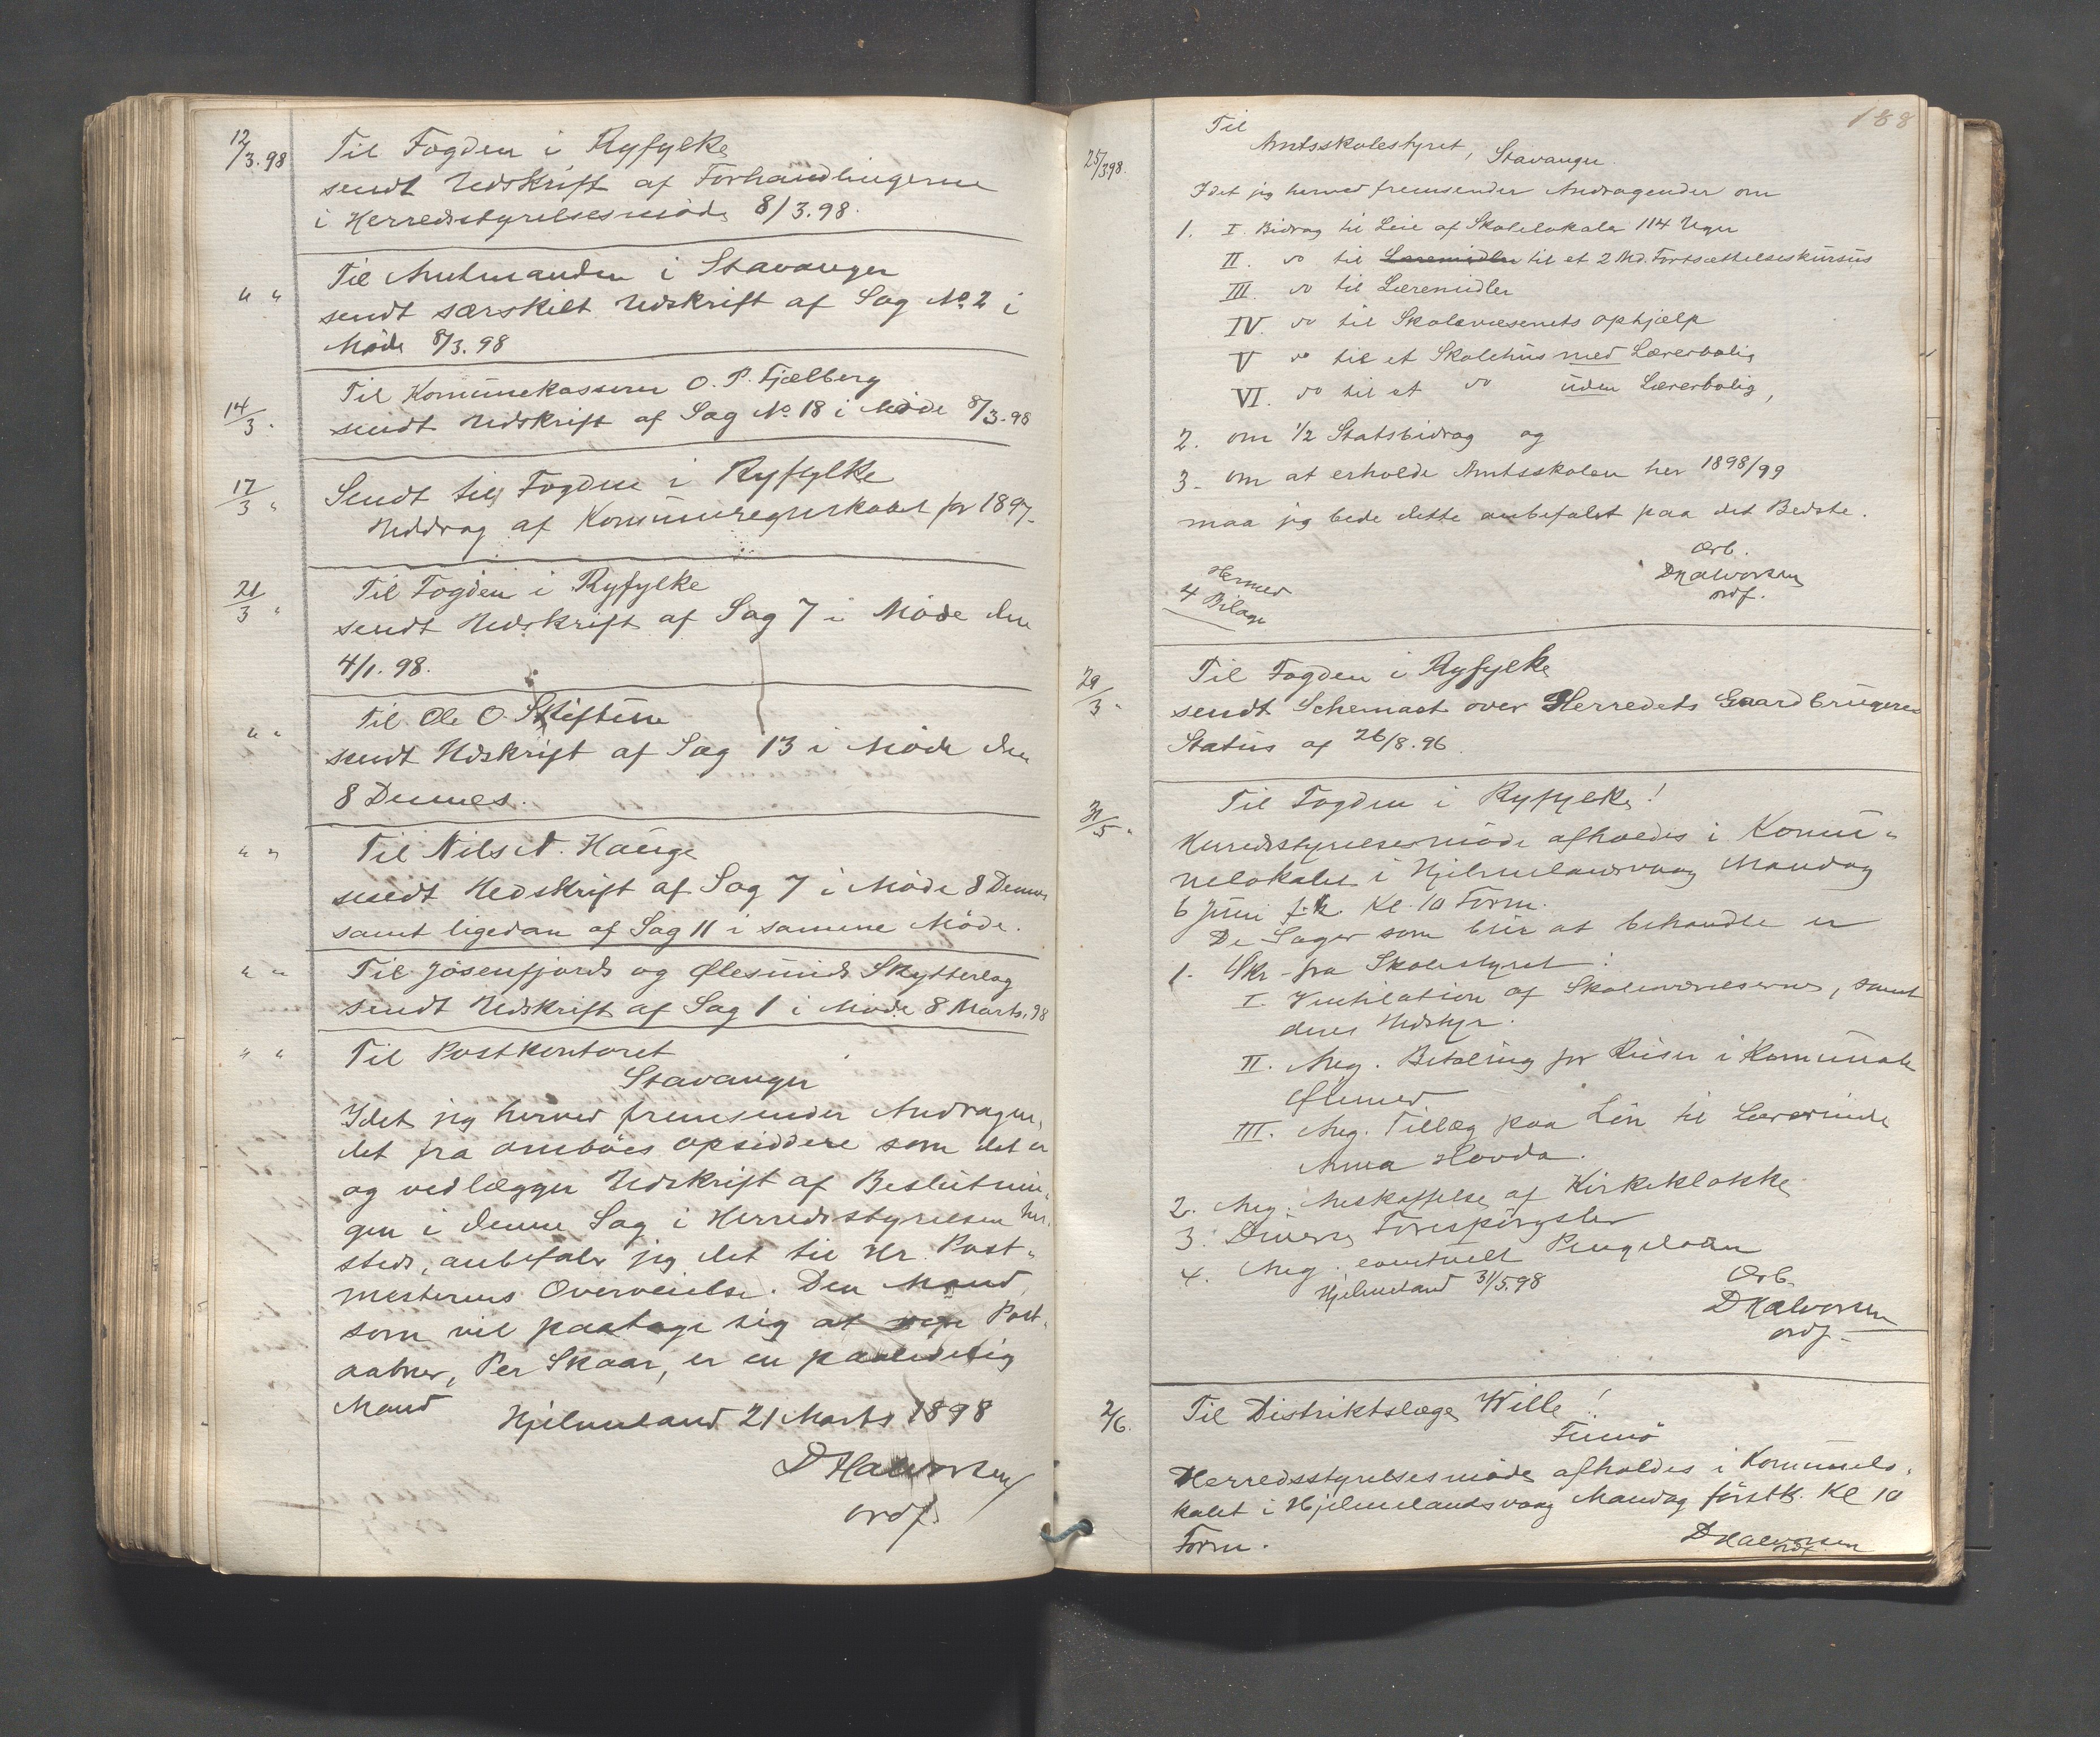 12/3.98 Til Fogden i Ryfylke
sendt Udskrift af Forhandlingerne
i Herredsstyrelsesmöde 8/3.98.
" " Til Amtmanden i Stavanger
sendt særskilt Udskrift af Sag No 2 i
Möde 8/3.98
Til Kommunekasserer O. P. Fjælberg
14/3. sendt Udskrift af Sag No 18 i Möde 8/3.98
17/3 " Sendt til Fogden i Ryfylke
Uddrag af Kommuneregnskabet for 1897.
21/3 " Til Fogden i Ryfylke
sendt Udskrift af Sag 7 i Möde den
4/1.98.
" " Til Ole O. Skiftun
sendt Udskrift af Sag 13 i Möde den
8 Dennes.
" " Til Nils N. Hauge
sendt Udskrift af Sag 7 i Möde 8 Dennes
samt ligedan af Sag 11 i samme Möde.
" " Til Jösenfjords og Ölesunds Skytterlag
sendt Udskrift af Sag 1 i Möde 8 Marts 98
" " Til Postkontoret
Stavanger
Idet jeg herved fremsender Andragen,
det fra omböes opsiddere som det er
og vedlægger Udskrift af Beslutnin,
gen i denne Sag i Herredsstyrelsen her,
steds, anbefaler jeg det til Hr. Post-
mesterens Overveielse. Den Mand,
som vil paatage sig at Post-
aabner, Per Skaar, er en paalidelig
Mand
Hjelmeland 21 Marts 1898
D Halvorsen
ordf.
188
25/3 98. Til
Amtsskolestyret, Stavanger.
Idet jeg herved fremsender Andragender om
1. I. Bidrag til Leie af Skolelokaler 114 Uger
II. do til Læremidler til et 2 Md. Fortsættelseskursus
III. do til Læremidler
IV. do til Skolevæsenets ophjælp
V do til et Skolehus med Lærerbolig
VI. do til et do uden Lærerbolig,
2. om 1/2 Statsbidrag og
3. om at erholde Amtsskolen her 1898/99
maa jeg bede dette anbefalet paa det Bedste.
Ærb.
DHalvorsen
ordf.
Hermed
4 Bilage
29/3 " Til Fogden i Ryfylke
sendt Schemaet over Herredets Gaardbrugeres
Status af 26/8.96.
31/5 " Til Fogden i Ryfylke!
Herredsstyrelsesmöde afholdes i Kommu-
nelokalet i Hjelmelandsvaag Mandag
6 Juni f.k. Kl. 10 Form.
De Sager som blir at behandle er
1. Skr. fra Skolestyret:
I. Ventilation af Skoleværelserne, samt
deres Udstyr.
II. Ang. Betaling for Reiser i Kommunale
Øiemed
III. Ang. Tillæg paa Lön til Lærerinde
Anna Hovda.
2. Ang. Anskaffelse af Kirkeklokke
3. Diverse Forespörgsler
4. Ang. eventuelt Pengelaan
Hjelmeland 31/5.98
Ærb.
DHalvorsen
ordf.
2/6. Til Distriktslæge Wille!
Finnö
Herredsstyrelsesmöde afholdes i Kommunelo,
kalet i Hjelmelandsvaag Mandag förstk. Kl 10
Form.
DHalvorsen
ordf